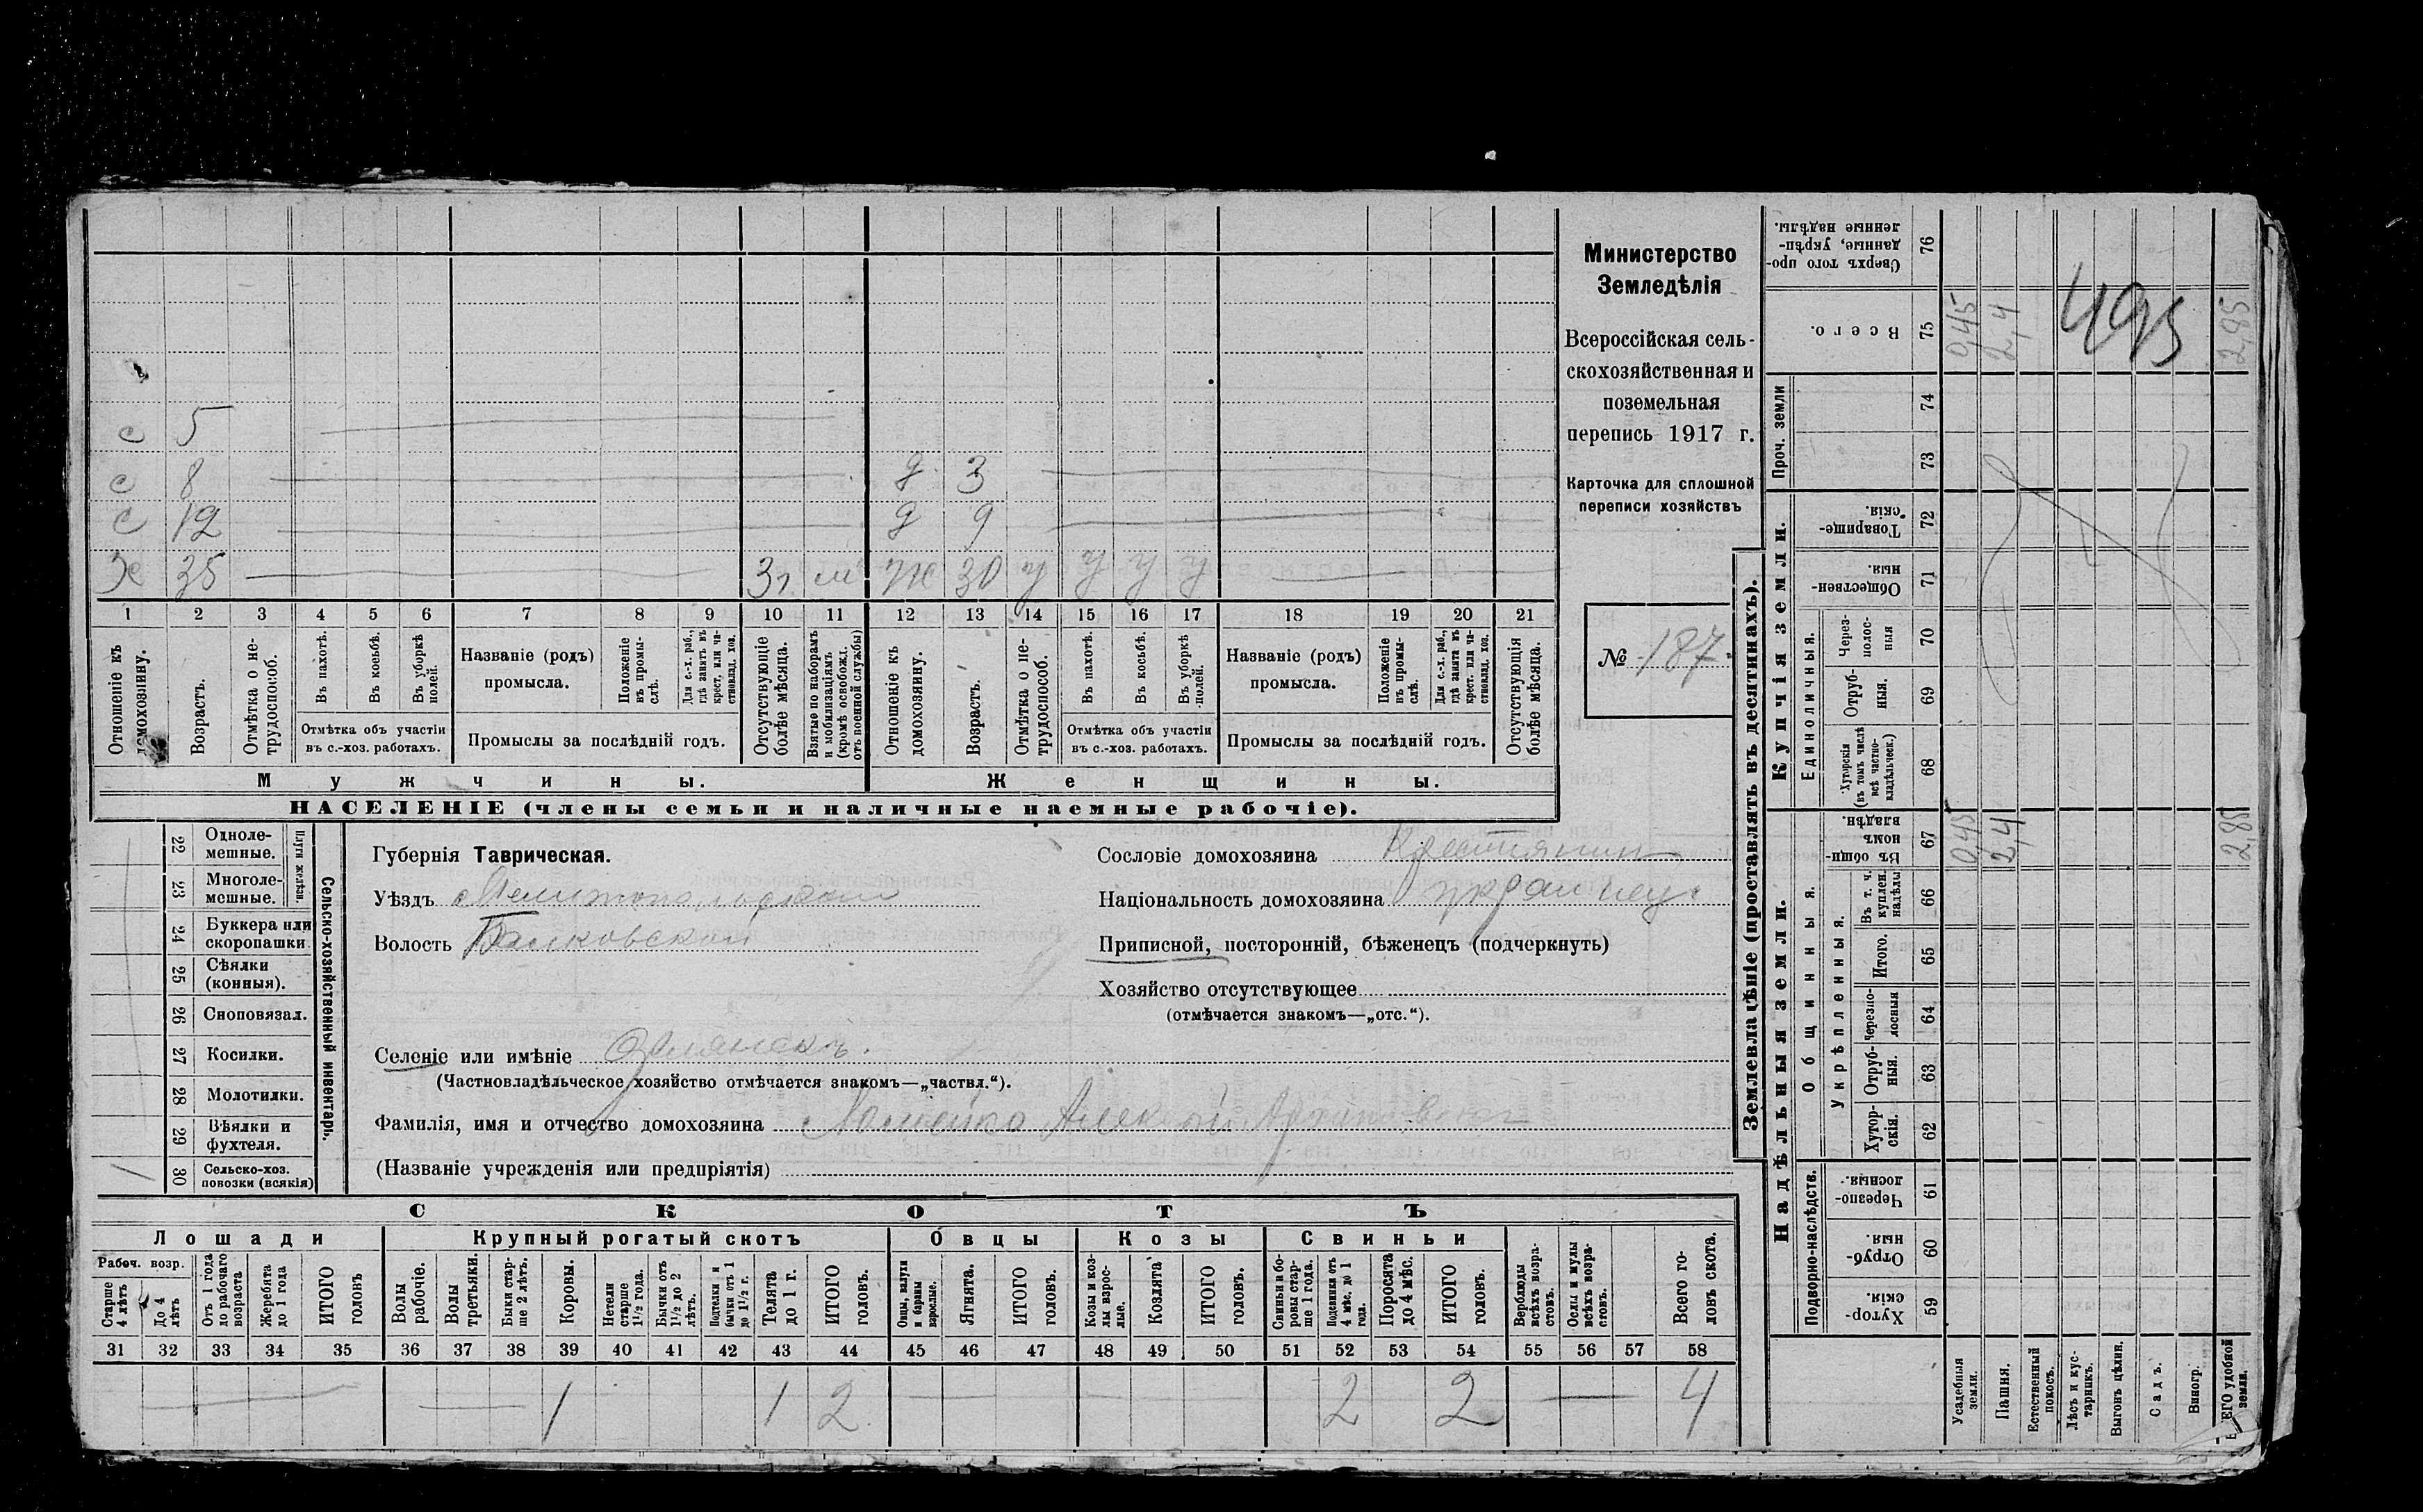 с 5
с 8 д 3
с 12 д 9
Х 35 31 м ж 30 у у у у
1 2 3 4 5 6 7 8 9 10 11 12 13 14 15 16 17 18 19 20 21
Отношеніе къ домохозяину.
Возрастъ.
Отмѣтка о нетрудоспособ.
Въ пахотѣ.
Въ косьбѣ.
Въ уборкѣ полей.
Отмѣтка объ участіи въ с.-хоз. работахъ.
Названіе (родъ) промысла.
Положеніе въ промыслѣ.
Для с.-х. раб., гдѣ занятъ въ крест. или частновлад. хоз.
Промыслы за послѣдній годъ.
Отсутствующіе болѣе мѣсяца.
Взятые по наборамъ и мобилизаціямъ (кромѣ освобожд. отъ военной службы)
Отношеніе къ домохозяину.
Возрастъ.
Отмѣтка о нетрудоспособ.
Въ пахотѣ.
Въ косьбѣ.
Въ уборкѣ полей.
Отмѣтка объ участіи въ с.-хоз. работахъ.
Названіе (родъ) промысла.
Положеніе въ промыслѣ.
Для с.-х. раб., гдѣ занята въ крест. или частновлад. хоз.
Промыслы за послѣдній годъ.
Отсутствующія болѣе мѣсяца.
Мужчины. Женщины.
НАСЕЛЕНІЕ (члены семьи и наличные наемные рабочіе).
Министерство
Земледѣлія
Всероссійская сель-
скохозяйственная и
поземельная
перепись 1917 г.
Карточка для сплошной
переписи хозяйствъ
№ 187
22 Однолемешные.
23 Многолемешные.
Плуги желѣзн.
24 Буккера или скоропашки
25 Сѣялки (конныя).
26 Сноповязал.
27 Косилки.
28 Молотилки.
29 Вѣялки и фухтеля.
30 Сельско-хоз. повозки (всякія) 1
Сельско-хозяйственный инвентарь.
Губернія Таврическая.
Уѣздъ Мелитопольскій
Волость Балковской
Селеніе или имѣніе
(Частновладѣльческое хозяйство отмѣчается знакомъ—„частвл.“).
Фамилія, имя и отчество домохозяина Алексей
(Названіе учрежденія или предпріятія)
Сословіе домохозяина Крестьянин
Національность домохозяина украинец
Приписной, посторонній, бѣженецъ (подчеркнуть)
Хозяйство отсутствующее
(отмѣчается знакомъ—„отс.“).
СКОТЪ
Лошади Крупный рогатый скотъ Овцы Козы Свиньи
Рабоч. возр.
Старше 4 лѣтъ
До 4 лѣтъ
Отъ 1 года до рабочаго возраста
Жеребята до 1 года
ИТОГО головъ
Волы рабочіе.
Волы третьяки.
Быки старше 2 лѣтъ.
Коровы.
Нетели старше 1½ года.
Бычки отъ 1½ до 2 лѣтъ.
Подтелки и бычки отъ 1 до 1½ г.
Телята до 1 г.
ИТОГО головъ.
Овцы, валухи и бараны взрослые.
Ягнята.
ИТОГО головъ.
Козы и козлы взрослые.
Козлята
ИТОГО головъ.
Свиньи и боровы старше 1 года.
Подсвинки отъ 4 мѣс. до 1 года.
Поросята до 4 мѣс.
ИТОГО головъ.
Верблюды всѣхъ возрастовъ.
Ослы и мулы всѣхъ возрастовъ.
Всего головъ скота.
31 32 33 34 35 36 37 38 39 40 41 42 43 44 45 46 47 48 49 50 51 52 53 54 55 56 57 58
1 1 2 2 2 4
Землевладѣніе (проставлять въ десятинахъ).
Надѣльныя земли. Купчія земли. Проч. земли
Подворно-наслѣдств.
Общинныя.
Укрѣпленныя.
Единоличныя.
Сверхъ того проданные, укрѣпленные надѣлы. 76
Всего. 75 0,45 2,4 2,85
495
74
73
Товарищескія. 72
Общественныя. 71
Черезполосныя 70
Отрубныя. 69
Хуторскія (въ томъ числѣ всѣ частновладѣльческ.) 68
Въ общинномъ владѣн. 67 0,45 2,4 2,85
Въ т. ч. куплен. надѣлы 66
Итого. 65
Черезполосныя 64
Отрубныя. 63
Хуторскія. 62
Черезполосныя. 61
Отрубныя. 60
Хуторскія. 59
Усадебныя земли.
Пашня.
Естественный покосъ.
Лѣсъ и кустарникъ.
Выгонъ цѣлин.
Садъ.
Виногр.
ЕГО удобной земли.